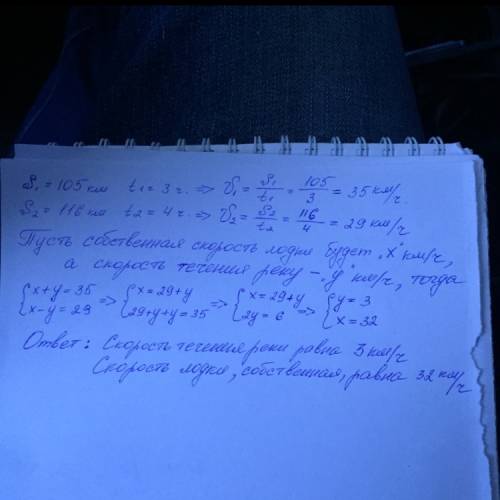 S₁ = 105 км t₁ = 3 ч. => V₁ = S₁/t₁ = 105/3 = 35 км/ч.
S₂ = 116 км t₂ = 4 ч. => V₂ = S₂/t₂ = 116/4 = 29 км/ч
Пусть собственная скорость лодки будет „x“ км/ч,
а скорость течения реку – „y“ км/ч, тогда
{x+y=35 => {x=29+y => {x=29+y => {y=3
{x-y=29 {29+y+y=35 {2y=6 {x=32
Ответ: Скорость течения реки равна 3 км/ч
Скорость лодки, собственная, равна 32 км/ч